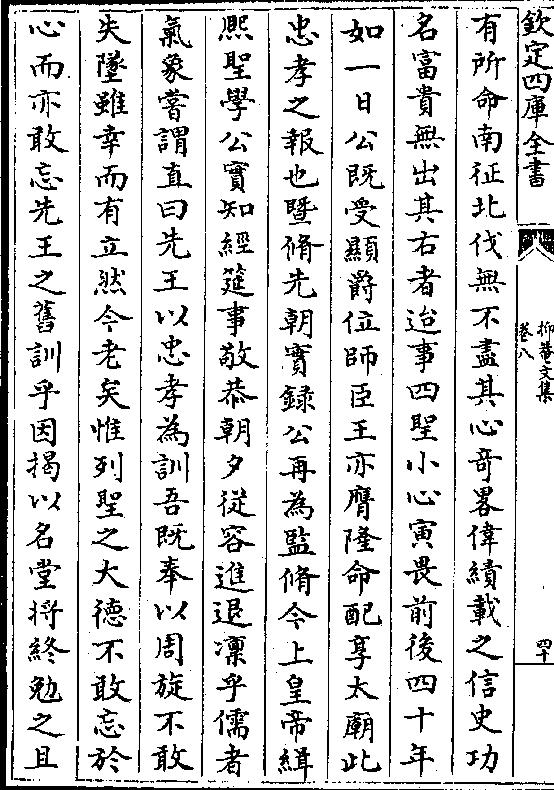 欽定四庫全書
抑菴文集
卷八
四十
有所命南征北伐無不盡其心竒畧偉績載之信史功
名富貴無出其右者迨事四聖小心寅畏前後四十年
如一日公既受顯爵位師臣王亦膺隆命配享太廟此
忠孝之報也暨脩先朝實錄公再為監脩今上皇帝緝
熈聖學公實知經筵事敬恭朝夕從容進退凜乎儒者
氣象嘗謂直曰先王以忠孝為訓吾既奉以周旋不敢
失墜雖幸而有立然今老矣惟列聖之大德不敢忘於
心而亦敢忘先王之舊訓乎因揭以名堂將終勉之且